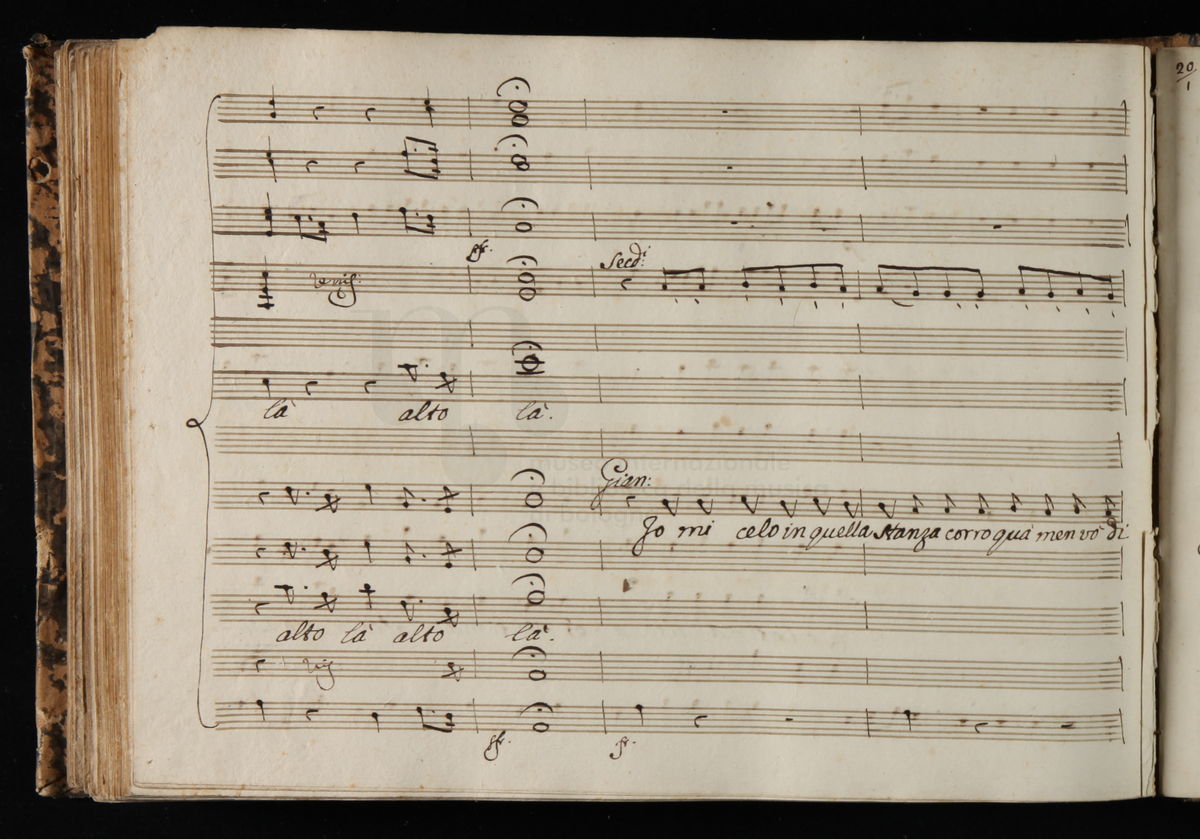 20
1
Secdi
là alto là.
Gian:
Jo mi celo in quella stanza corro quà men vò di
alto là alto là.
museo internazionale
biblioteca della musica
di bologna